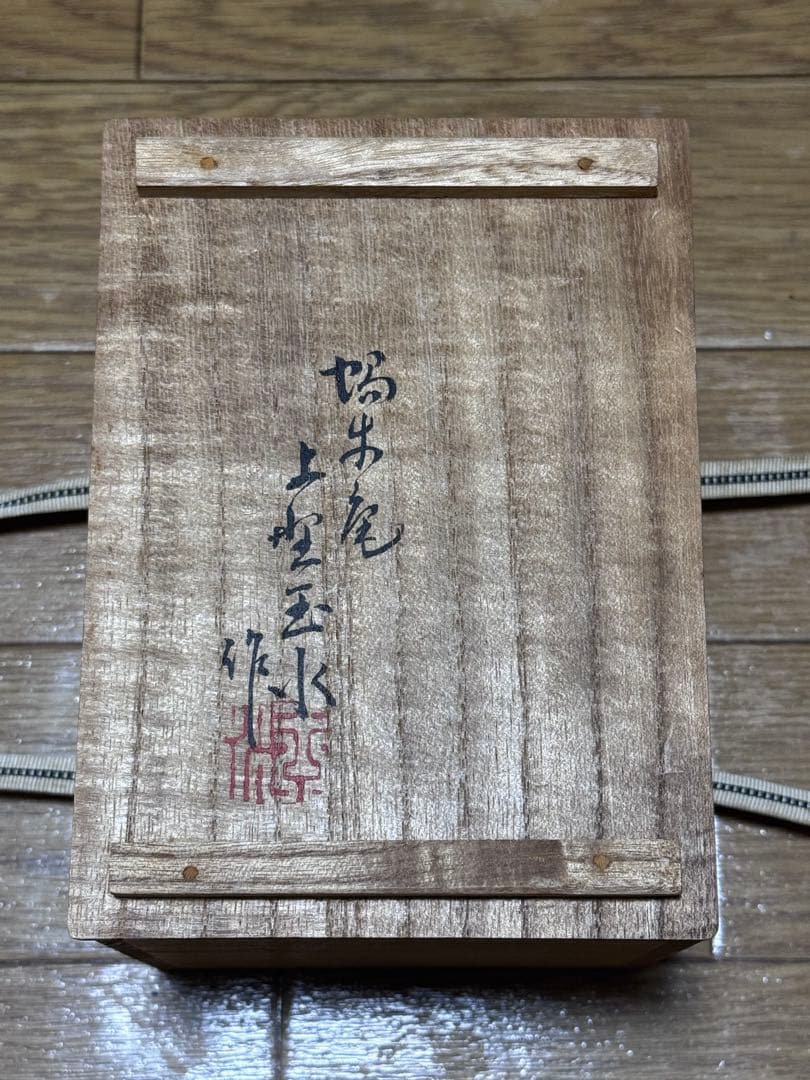 蝸牛庵
上野玉水
作